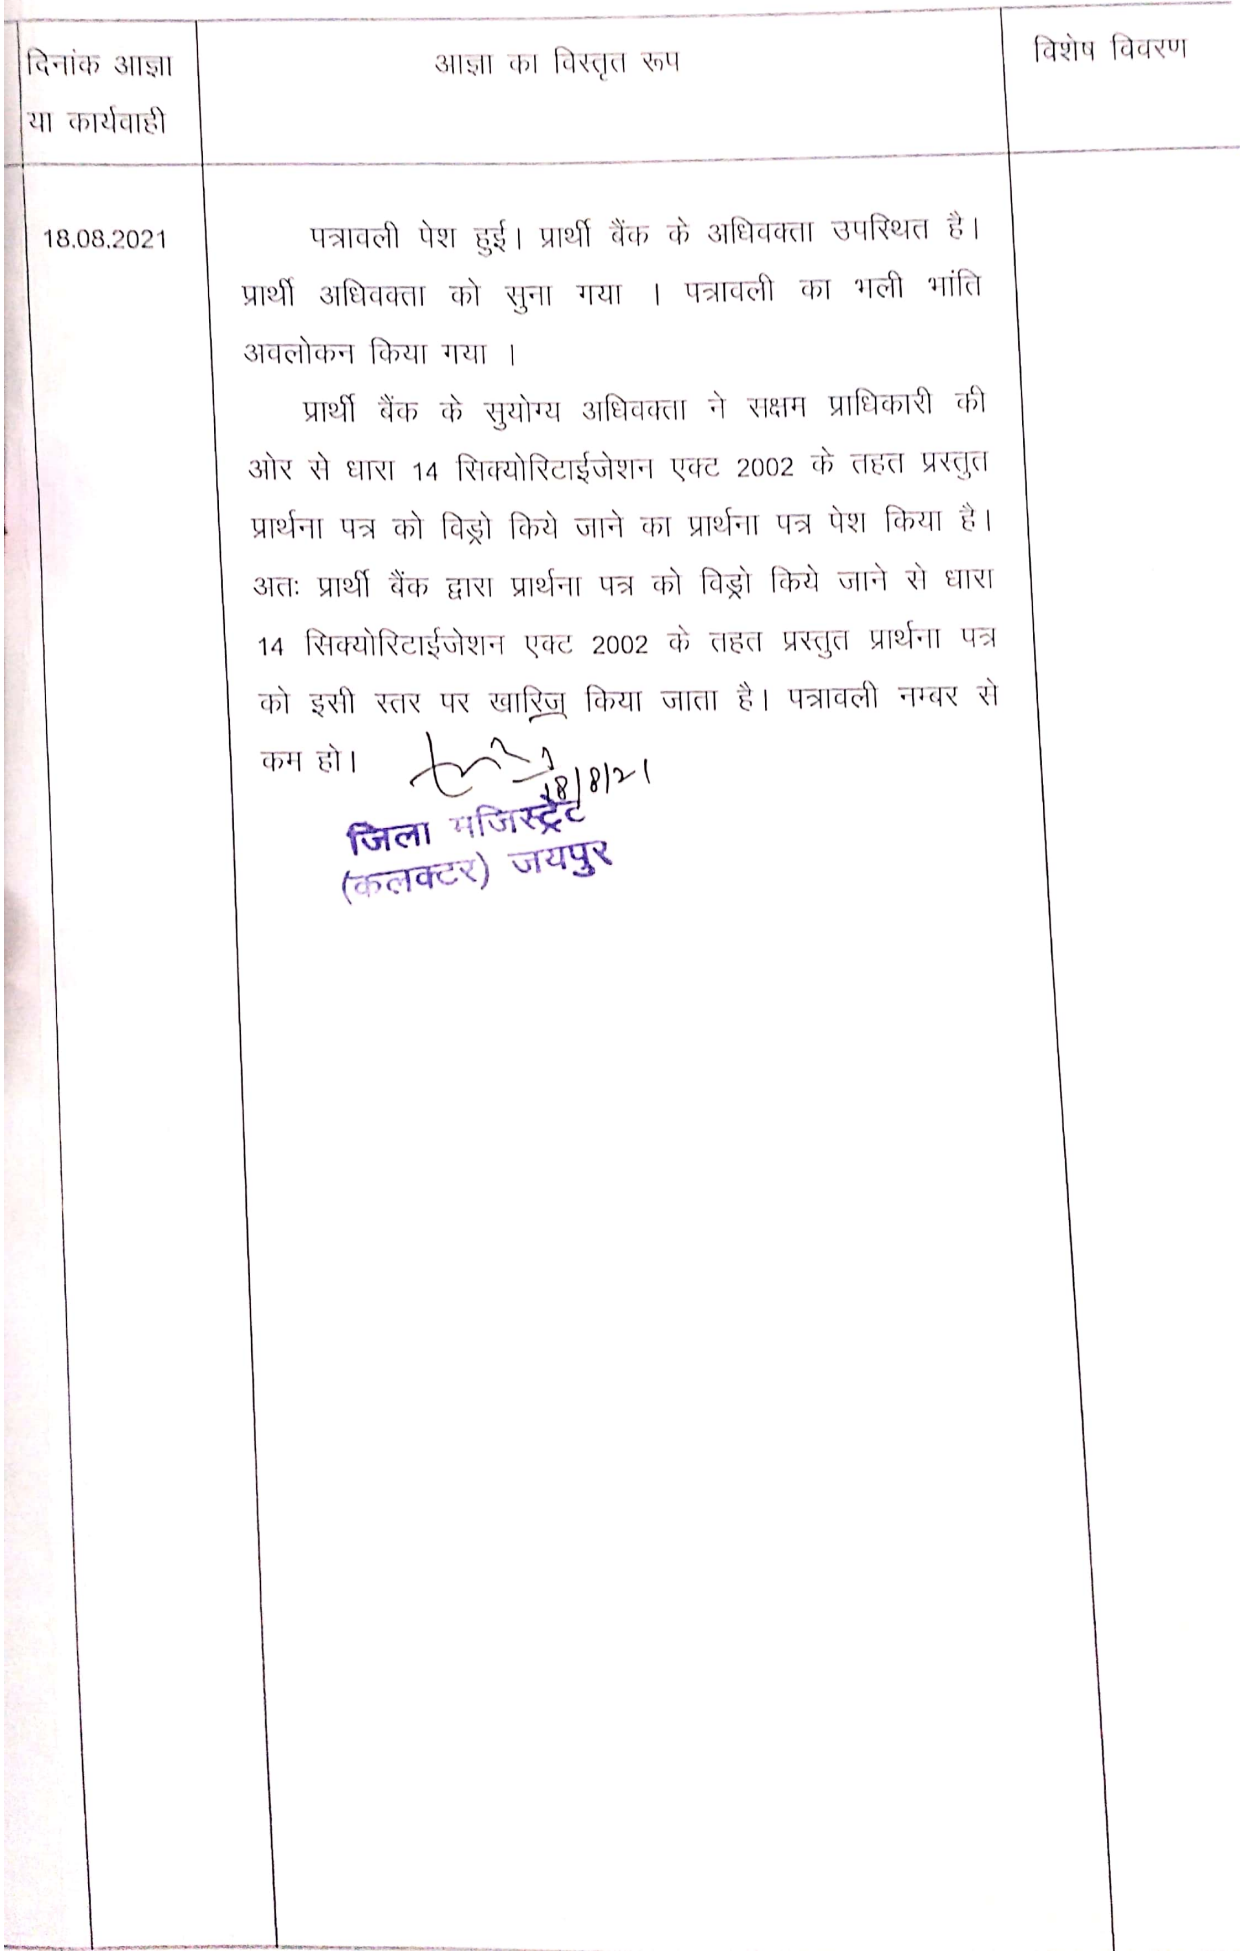 दिनांक आज्ञा
या कार्यवाही
आज्ञा का विस्तृत रूप
विशेष विवरण
18.08.2021
पत्रावली पेश हुई। प्रार्थी बैंक के अधिवक्ता उपस्थित है।
प्रार्थी अधिवक्ता को सुना गया । पत्रावली का भली भांति
अवलोकन किया गया ।
प्रार्थी बैंक के सुयोग्य अधिवक्ता ने सक्षम प्राधिकारी की
ओर से धारा 14 सिक्योरिटाईजेशन एक्ट 2002 के तहत प्रस्तुत
प्रार्थना पत्र को विड्रो किये जाने का प्रार्थना पत्र पेश किया है।
अतः प्रार्थी बैंक द्वारा प्रार्थना पत्र को विड्रो किये जाने से धारा
14 सिक्योरिटाईजेशन एक्ट 2002 के तहत प्रस्तुत प्रार्थना पत्र
को इसी स्तर पर खारिज किया जाता है। पत्रावली नम्बर से
कम हो।
18/8/21
जिला मजिस्ट्रेट
(कलक्टर) जयपुर